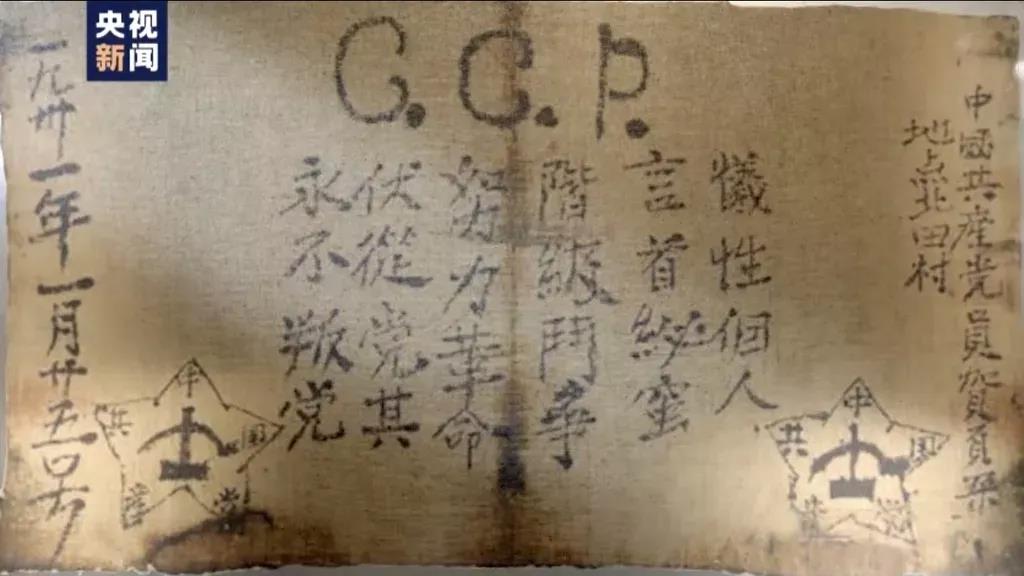 央视
新闻
C.C.P.
中國共產党員
地点北田村
犧性個人
言首秘蜜
階級鬥争
努力革命
伏從党其
永不叛党
一九卅一年一月廿五
中国共產党
中国共產党